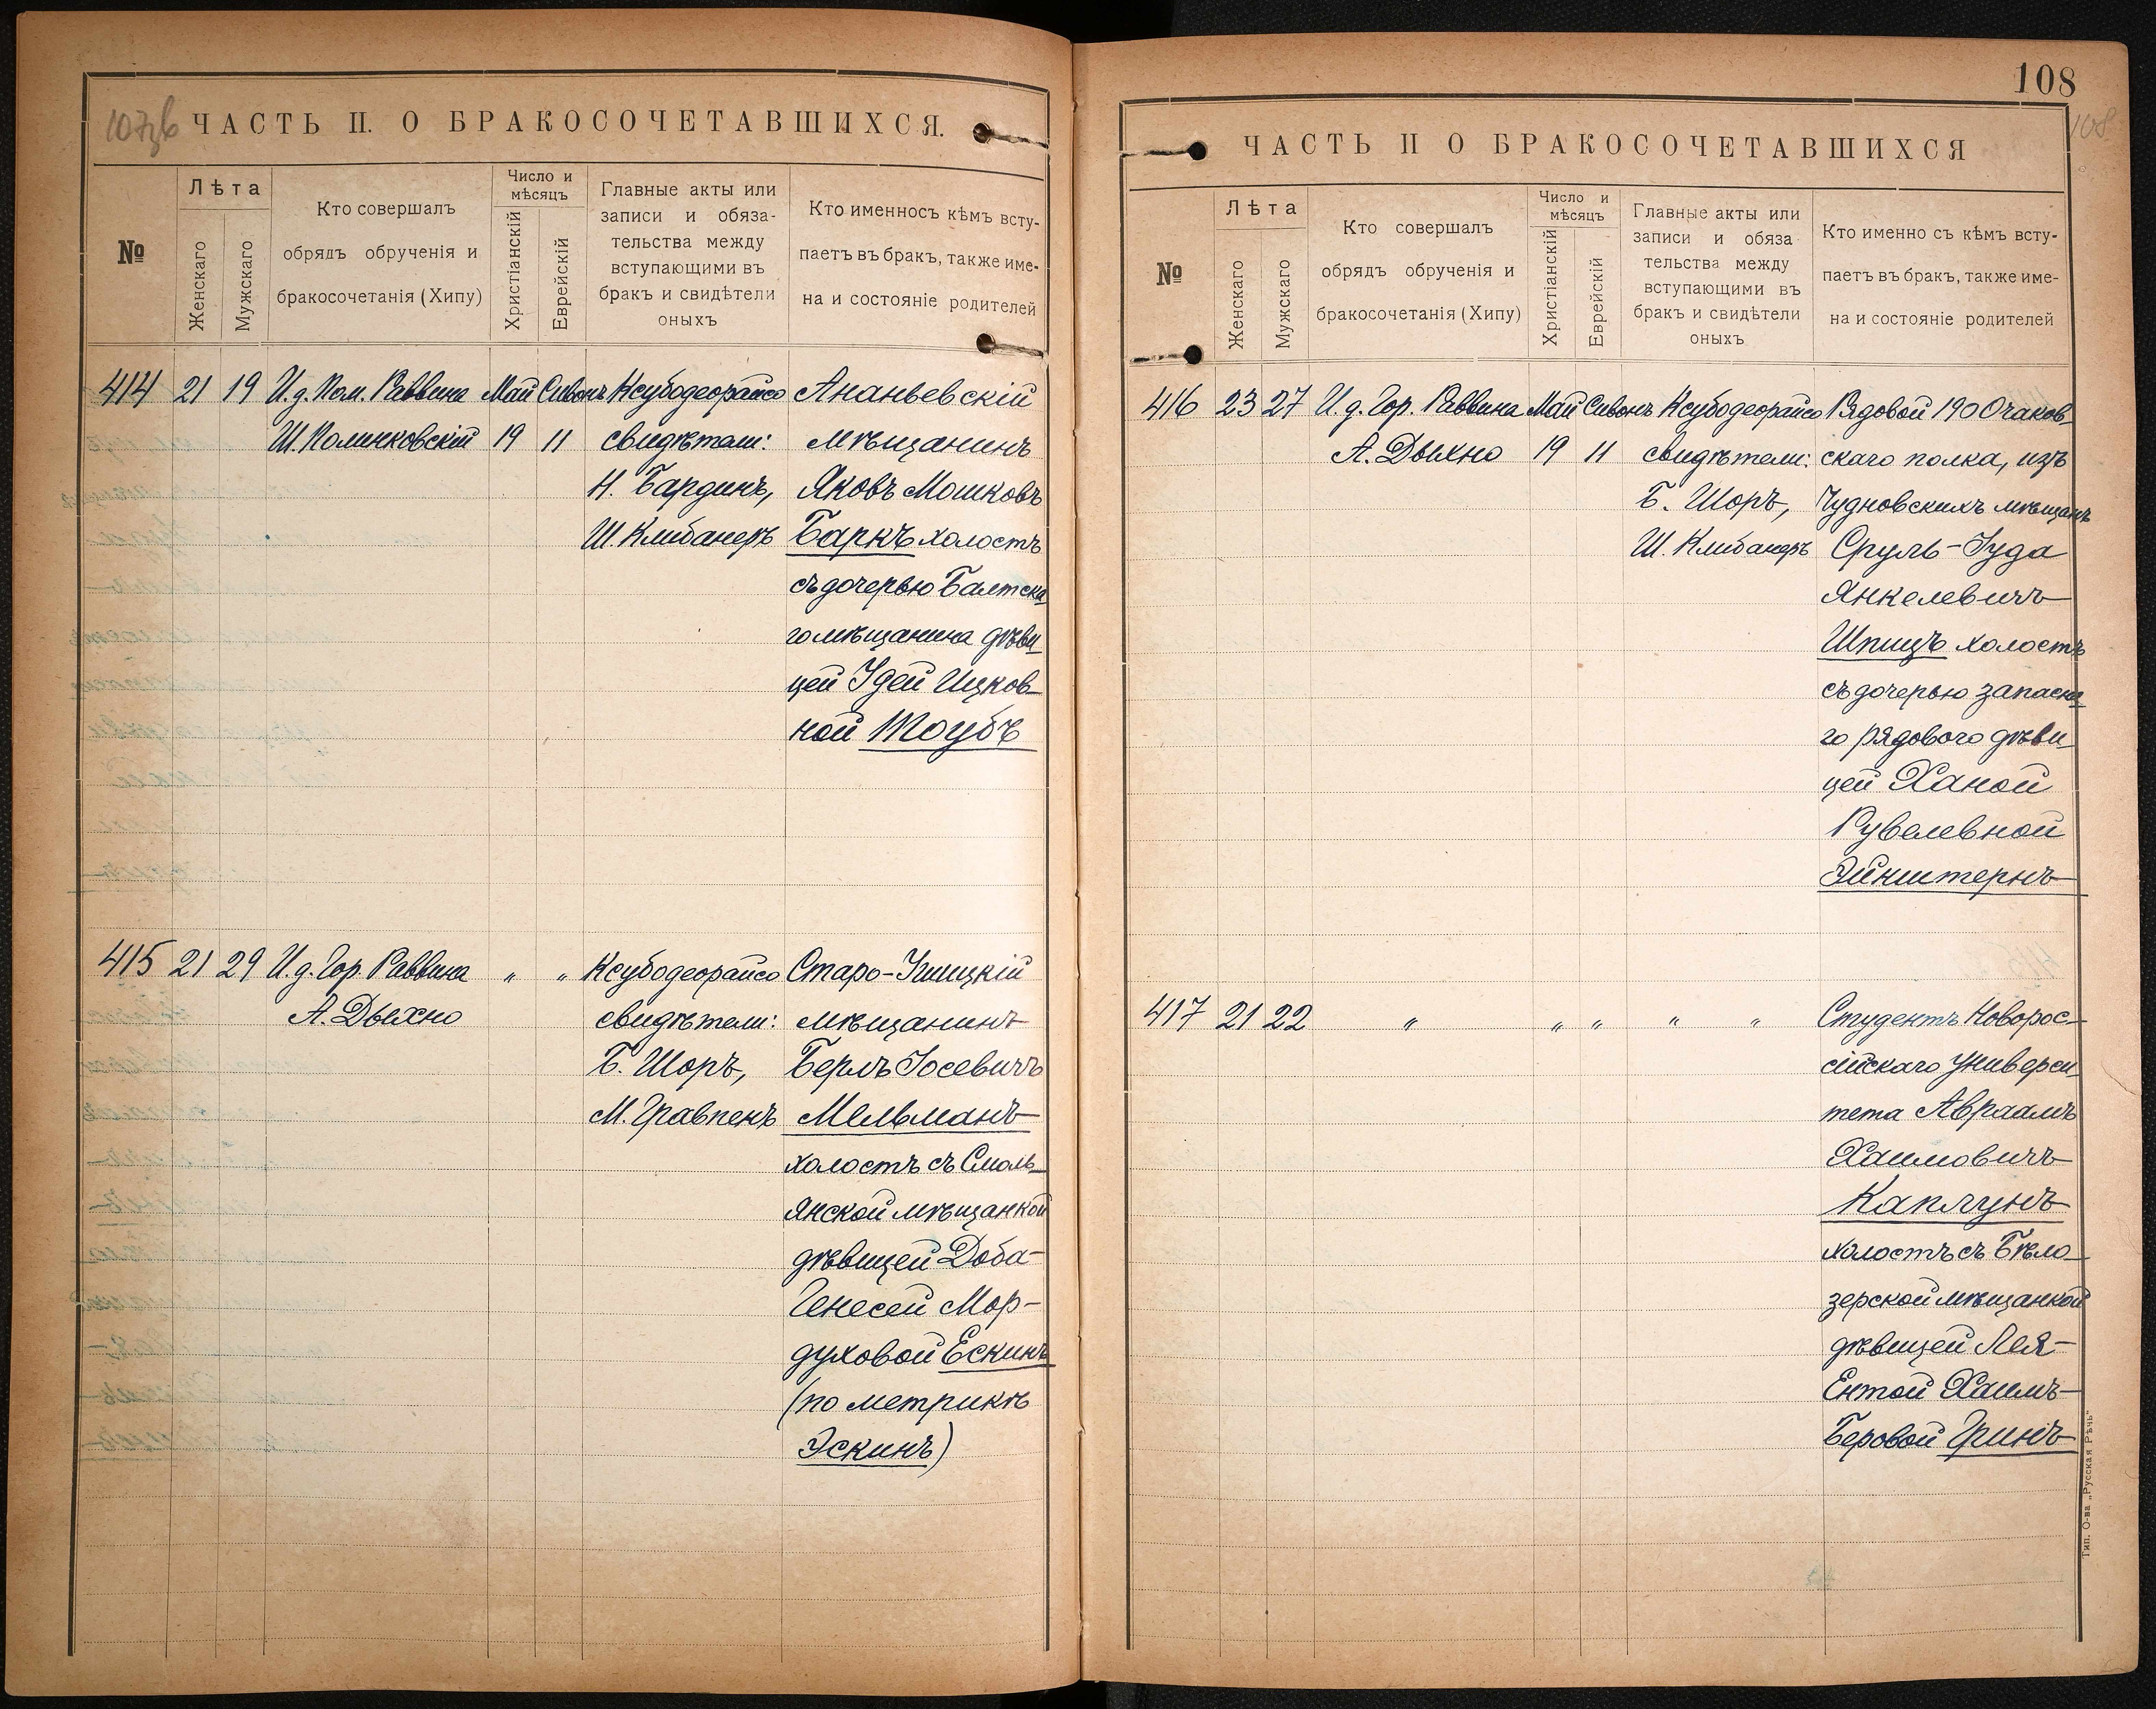 107об
ЧАСТЬ II. О БРАКОСОЧЕТАВШИХСЯ.
№
Лѣта
Женскаго
Мужскаго
Кто совершалъ
обрядъ обрученія и
бракосочетанія (Хипу)
Число и
мѣсяцъ
Христіанскій
Еврейскій
Главные акты или
записи и обяза-
тельства между
вступающими въ
бракъ и свидѣтели
оныхъ
Кто именносъ кѣмъ всту-
паетъ въ бракъ, также име-
на и состояніе родителей
414 21 19 И. д. Пом. Раввина Май Сивонъ Ксубодеорайсо Ананьевскій
Ш. Полинковскій 19 11 свидѣтели: мѣщанинъ
Н. Бардинъ, Яковъ Мошковъ
Ш. Клибанеръ Баркъ холостъ
съ дочерью Балтска
го мѣщанина дѣви
цей Идей Ицков
ной Тоубъ
415 21 29 И. д. Гор. Раввина „ „ Ксубодеорайсо Старо-Ушицкій
А. Дыхно свидѣтели: мѣщанинъ
Б. Шоръ, Берлъ Іосевичъ
М. Гравпенъ Мельманъ
холостъ съ Смоль
янской мѣщанкой
дѣвицей Доба-
Генесей Мор-
духовой Ескинъ
(по метрикѣ
Эскинъ)
108
108
ЧАСТЬ II О БРАКОСОЧЕТАВШИХСЯ
№
Лѣта
Женскаго
Мужскаго
Кто совершалъ
обрядъ обрученія и
бракосочетанія (Хипу)
Число и
мѣсяцъ
Христіанскій
Еврейскій
Главные акты или
записи и обяза
тельства между
вступающими въ
бракъ и свидѣтели
оныхъ
Кто именно съ кѣмъ всту-
паетъ въ бракъ, также име-
на и состояніе родителей
416 23 27 И. д. Гор. Раввина Май Сивонъ Ксубодеорайсо Рядовой 190 Очаков
А. Дыхно 19 11 свидѣтели: скаго полка, изъ
Б. Шоръ, Чудновскихъ мѣщанъ
Ш. Клибанеръ Сруль-Іуда
Янкелевичъ
Шпицъ холостъ
съ дочерью запасна
го рядового дѣви
цей Ханой
Рувелевной
Эйнштернъ
417 21 22 „ „ „ „ „ Студентъ Новорос-
сійскаго Универси
тета Авраамъ
Хаимовичъ
Каплунъ
холостъ съ Бѣло
зерской мѣщанкой
дѣвицей Лея-
Ентой Хаимъ-
Беровой Гринъ
Тип. О-ва „Русская Рѣчь“